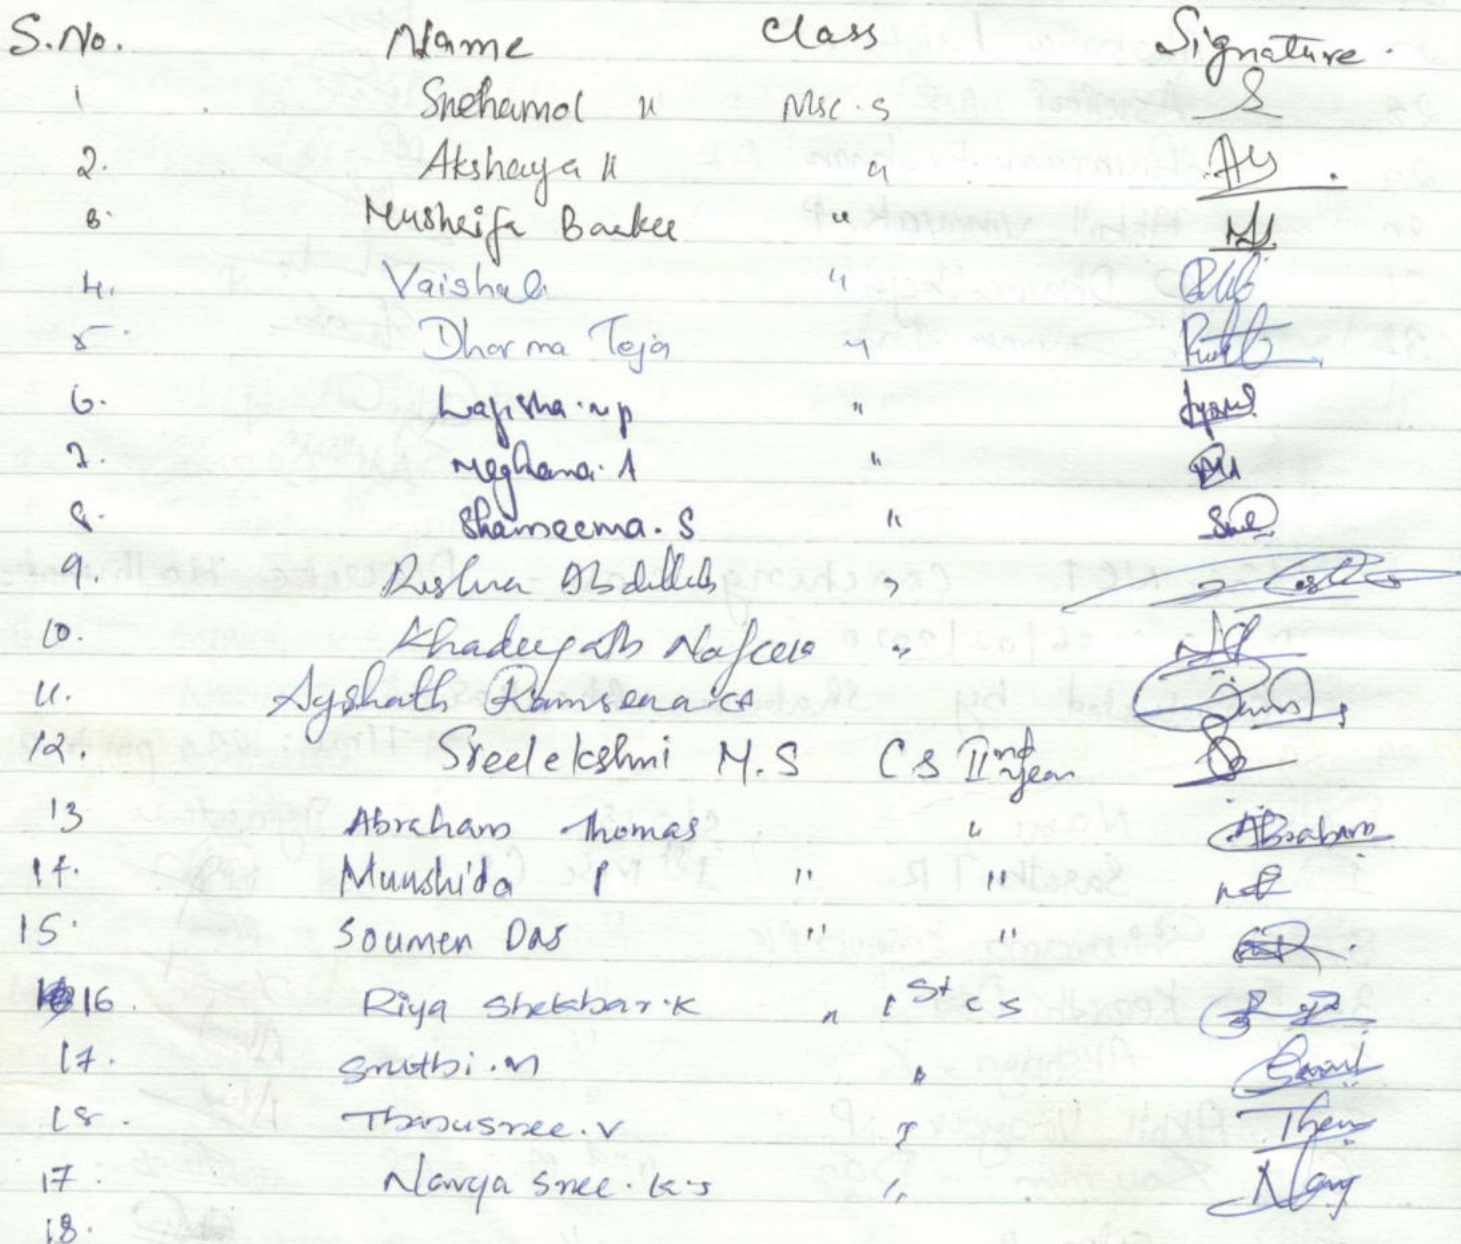 S.No. Name Class Signature.
1 Snehamol K Msc. S S
2. Akshaya K " AS
3. Musheifa Backer "
4. Vaishali "
5. Dharma Teja "
6. Lajisha. M P "
7. Meghana. A "
8. Shameema. S "
9. Rishna Abdulla "
10. Khadeejath Nafeesa "
11. Ayshath Ramseena
12. Sreelekshmi M.S CS IInd year
13 Abraham Thomas " Abraham
14. Munshida P " "
15. Soumen Das " "
16. Riya Shekhar. K " 1st CS
17. Sruthi. M "
18. Thanusree. V " Then
17. Navya Sree. K.S " Navy
18.